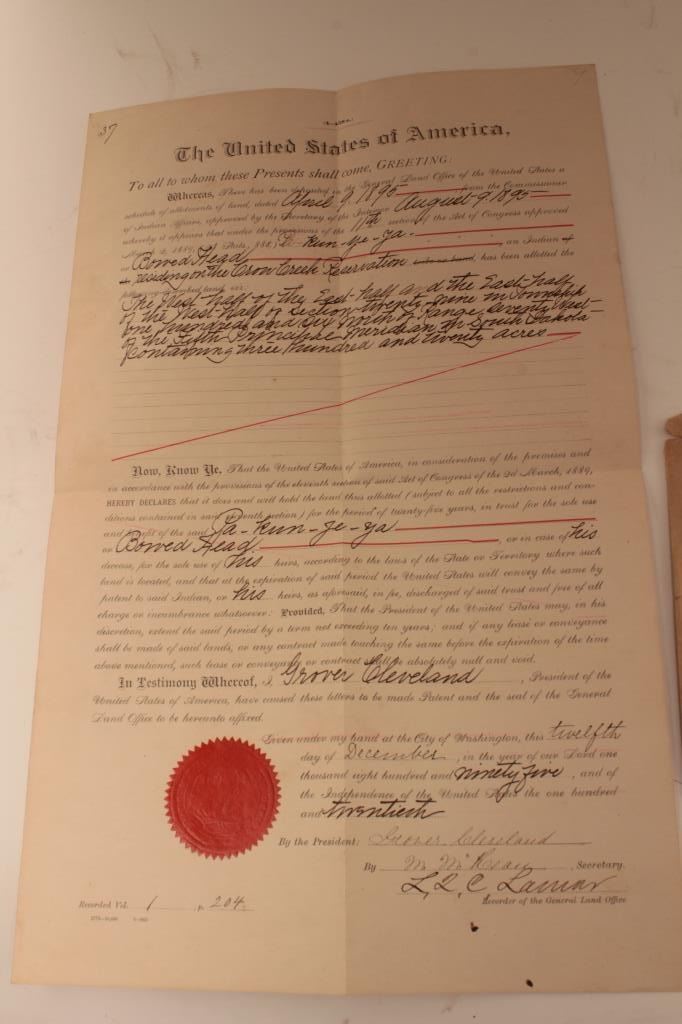 37
The United States of America,
To all to whom these Presents shall come, GREETING:
Whereas, There has been deposited in the General Land Office of the United States a
schedule of allotments of land, dated April 9, 1895 from the Commissioner
of Indian Affairs, approved by the Secretary of the Interior August 9, 1895
whereby it appears that under the provisions of the 11th section of the Act of Congress approved
March 2, 1889, Stats., 888, Pa-kun-ye-ya, an Indian of
or Bowed Head
residing on the Crow Creek Reservation has been allotted the
following described land, viz:
The West half of the East half and the East half
of the West half of Section twenty-nine in Township
one hundred and six North of Range seventy West
of the Fifth Principal Meridian in South Dakota
containing three hundred and twenty acres.
Now, Know Ye, That the United States of America, in consideration of the premises and
in accordance with the provisions of the eleventh section of said Act of Congress of the 2d March, 1889,
HEREBY DECLARES that it does and will hold the land thus allotted (subject to all the restrictions and con-
ditions contained in said eleventh section) for the period of twenty-five years, in trust for the sole use
and benefit of the said Pa-kun-ye-ya
or Bowed Head, or in case of his
decease, for the sole use of his heirs, according to the laws of the State or Territory where such
land is located, and that at the expiration of said period the United States will convey the same by
patent to said Indian, or his heirs, as aforesaid, in fee, discharged of said trust and free of all
charge or incumbrance whatsoever: Provided, That the President of the United States may, in his
discretion, extend the said period by a term not exceeding ten years; and if any lease or conveyance
shall be made of said lands, or any contract made touching the same before the expiration of the time
above mentioned, such lease or conveyance or contract shall be absolutely null and void.
In Testimony Whereof, I, Grover Cleveland, President of the
United States of America, have caused these letters to be made Patent and the seal of the General
Land Office to be hereunto affixed.
Given under my hand at the City of Washington, this twelfth
day of December, in the year of our Lord one
thousand eight hundred and ninety five, and of
the Independence of the United States the one hundred
and twentieth
By the President: Grover Cleveland
By M. McKean, Secretary.
L. Q. C. Lamar
Recorder of the General Land Office
Recorded Vol. 1 p. 204.